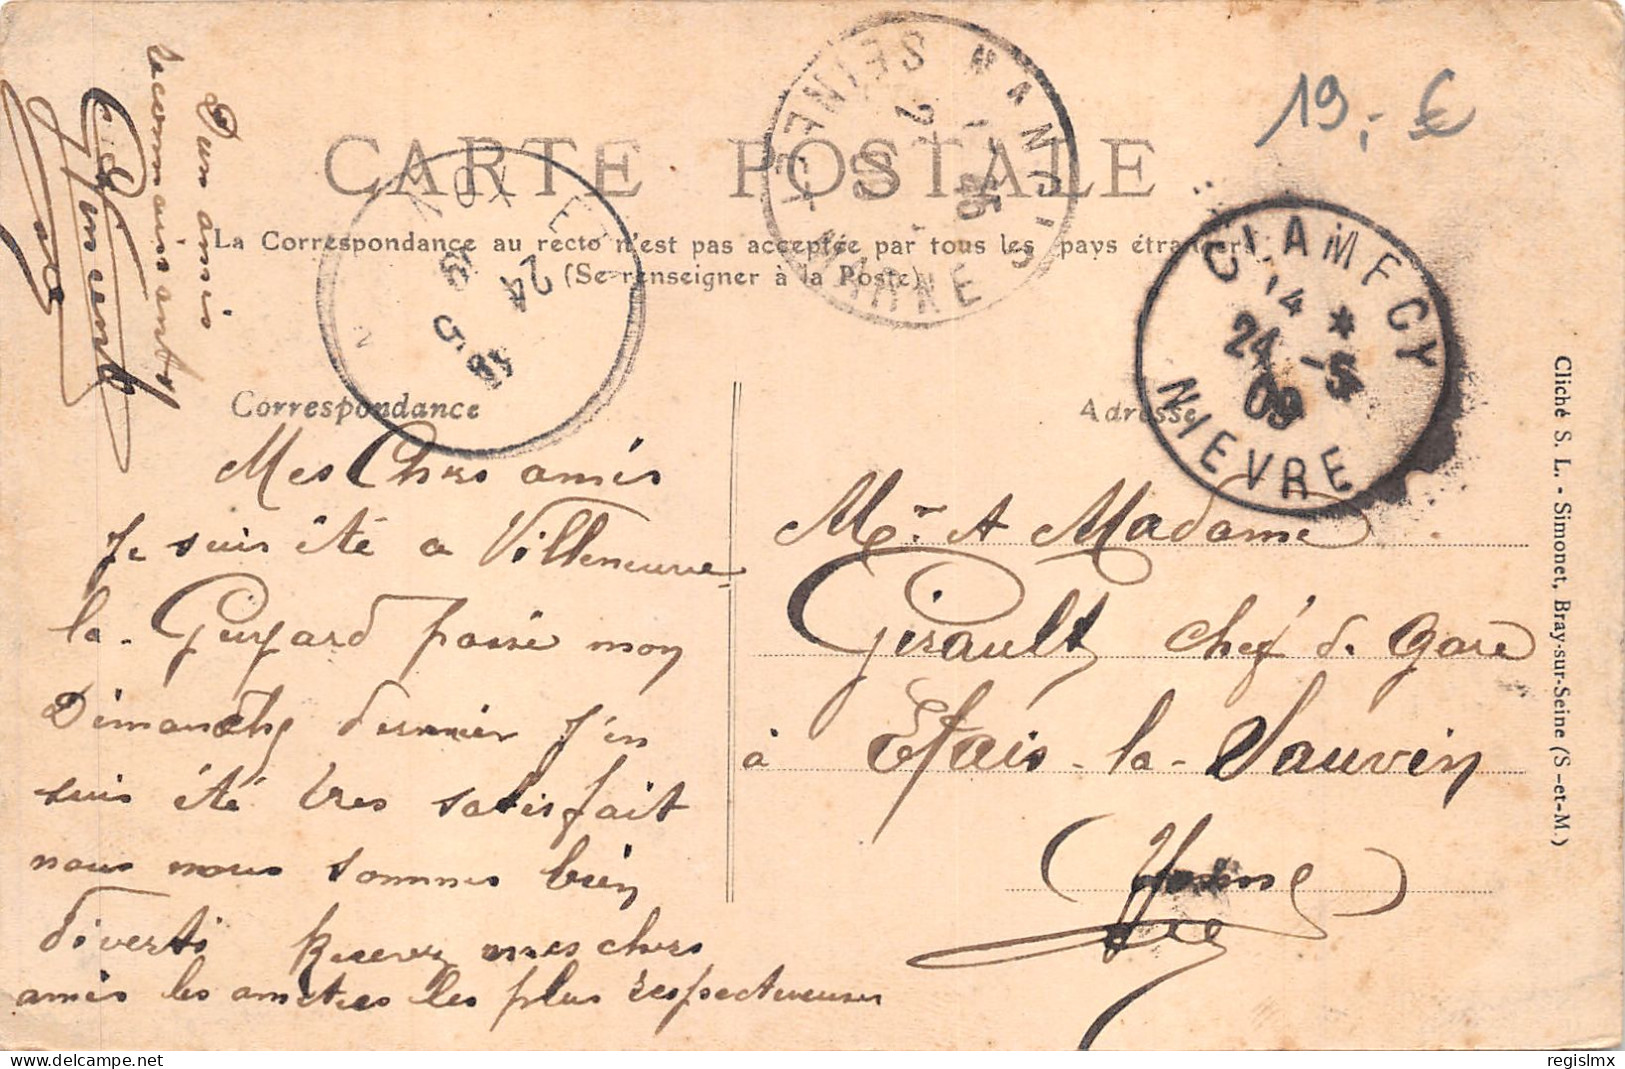 CARTE POSTALE
La Correspondance au recto n'est pas acceptée par tous les pays étrangers
(Se renseigner à la Poste)
Correspondance
Adresse
19,- €
NANGIS
SEINE-ET-MARNE
CLAMECY
14 *
24 -5
09
NIEVRE
24
5
Mes Chers amis
Je suis été a Villeneuve
la-Guyard passé mon
Dimanche dernier j'en
suis été tres satisfait
nous nous sommes bien
diverti Recevez mes chers
amis les amitiés les plus respectueuses
D'un amis
reconnaissant
Vincent
Mr. et Madame
Girault chef de Gare
à Etais-la-Sauvin
(Yonne)
Cliché S. L. - Simonet, Bray-sur-Seine (S-et-M.)
Notre site : www.regislmx.delcampe.net
regislmx